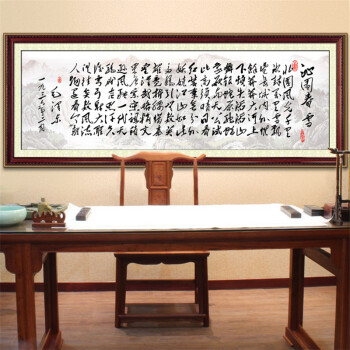 沁園春 雪
北国风光千里
冰封万里雪飘
望长城内外惟
余莽莽大河上
下顿失滔滔山
舞银蛇原驰
蜡象欲与天公试
比高须晴日看
红装素裹分外
妖娆江山如此
多娇引无数英
雄竞折腰惜秦
皇汉武略输文
采唐宗宋祖稍
逊风骚一代天
骄成吉思汗只
识弯弓射大雕
俱往矣数风流
人物还看今朝
毛泽东
一九三六年二月